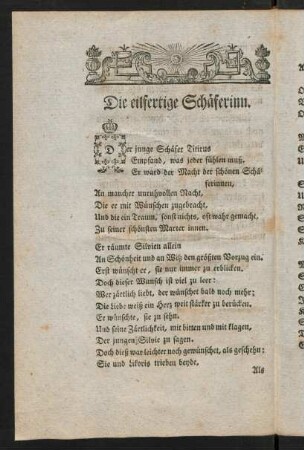 Die eilfertige Schäferinn.
Der junge Schäfer Titirus
Empfand, was jeder fühlen muß.
Er ward der Macht der schönen Schä-
ferinnen,
An mancher unruhvollen Nacht,
Die er mit Wünschen zugebracht,
Und die ein Traum, sonst nichts, oft wahr gemacht,
Zu seiner schönsten Marter innen.
Er räumte Silvien allein
An Schönheit und an Witz den größten Vorzug ein.
Erst wünscht er, sie nur immer zu erblicken,
Doch dieser Wunsch ist viel zu leer:
Wer zärtlich liebt, der wünschet bald noch mehr;
Die Liebe weiß ein Herz weit stärker zu berücken.
Er wünschte, sie zu sehn,
Und seine Zärtlichkeit, mit bitten und mit klagen,
Der jungen Silvie zu sagen.
Doch dieß war leichter noch gewünschet, als geschehn:
Sie und Likoris trieben beyde,
Als